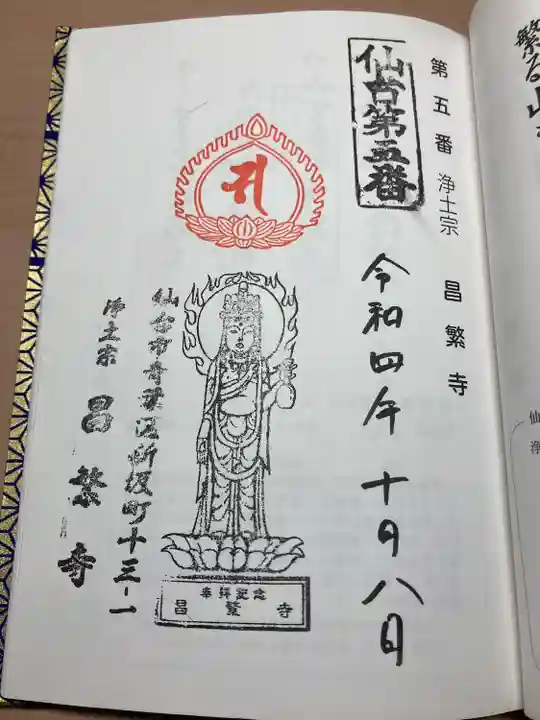 第五番 浄土宗 昌繁寺
仙台第五番
令和四年十月八日
キリーク
奉拝記念
昌繁寺
仙台市青葉区新坂町十三-一
浄土宗 昌繁寺